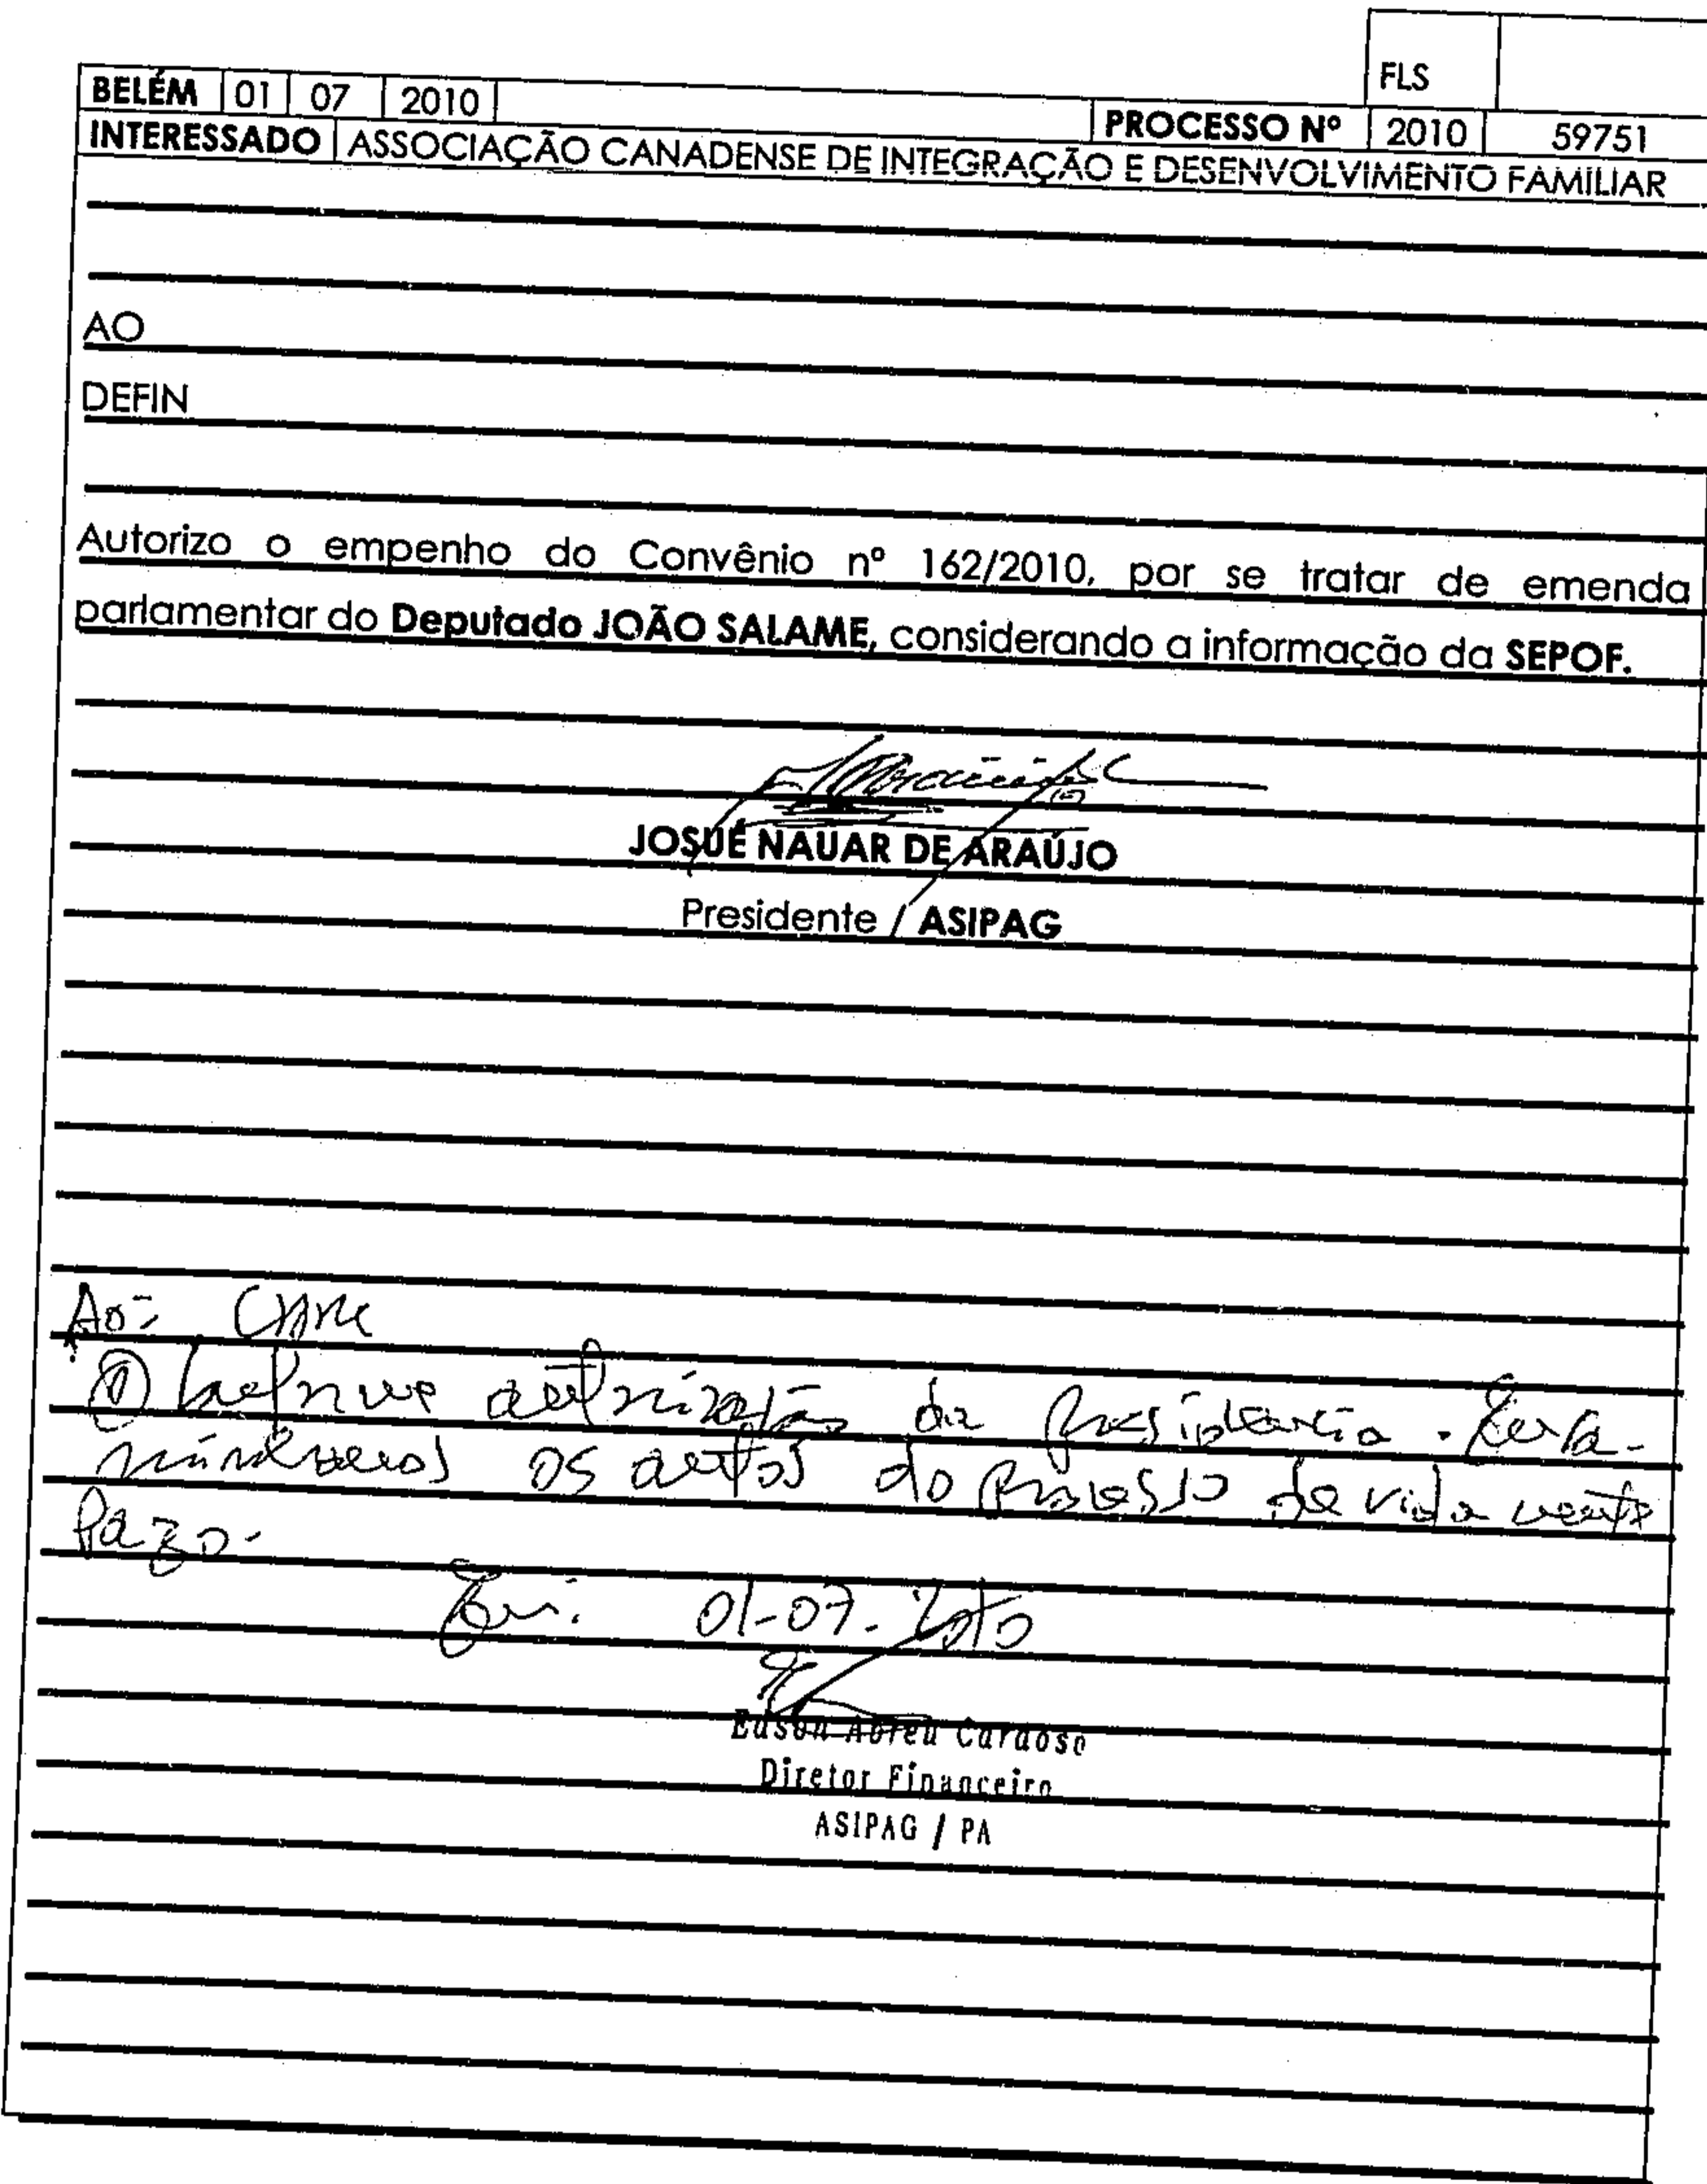 FLS
BELÉM 01 07 2010
PROCESSO Nº 2010 59751
INTERESSADO ASSOCIAÇÃO CANADENSE DE INTEGRAÇÃO E DESENVOLVIMENTO FAMILIAR
AO
DEFIN
Autorizo o empenho do Convênio nº 162/2010, por se tratar de emenda
parlamentar do Deputado JOÃO SALAME, considerando a informação da SEPOF.
JOSUÉ NAUAR DE ARAÚJO
Presidente / ASIPAG
Ao:
① autorização da Presidência
os autos do processo devidamente
Pago.
Em: 01-07-2010
Edson Abreu Cardoso
Diretor Financeiro
ASIPAG / PA